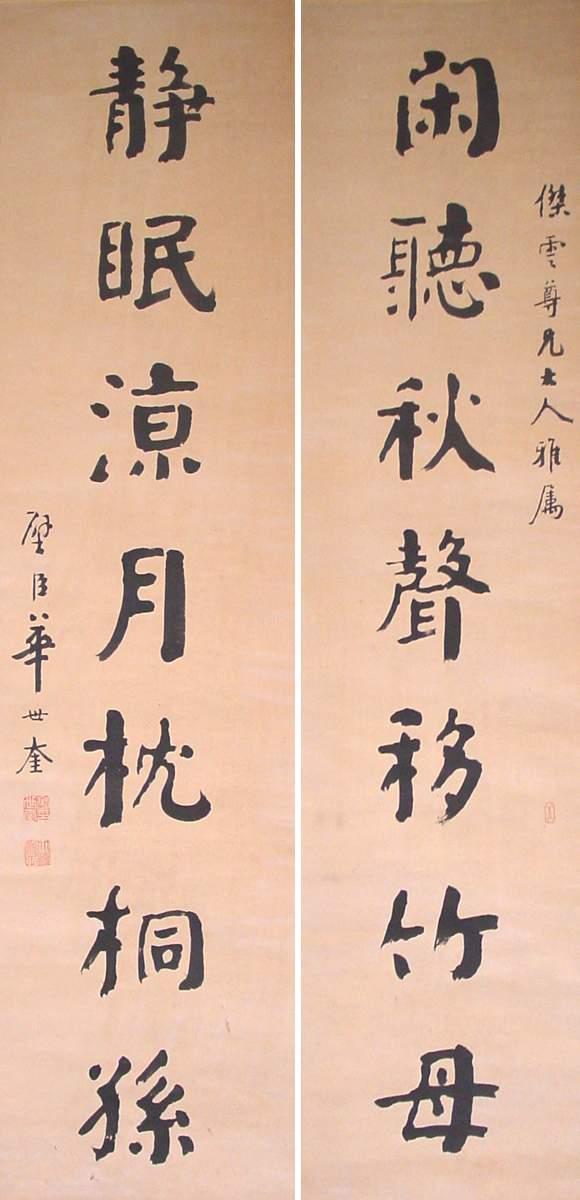 傑雲尊兄大人雅属
閑聽秋聲移竹母
靜眠涼月枕桐孫
璧臣華世奎